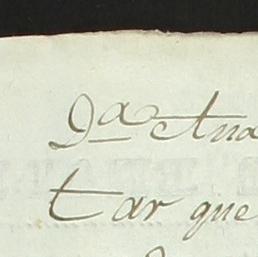 Dª Ana
tar que